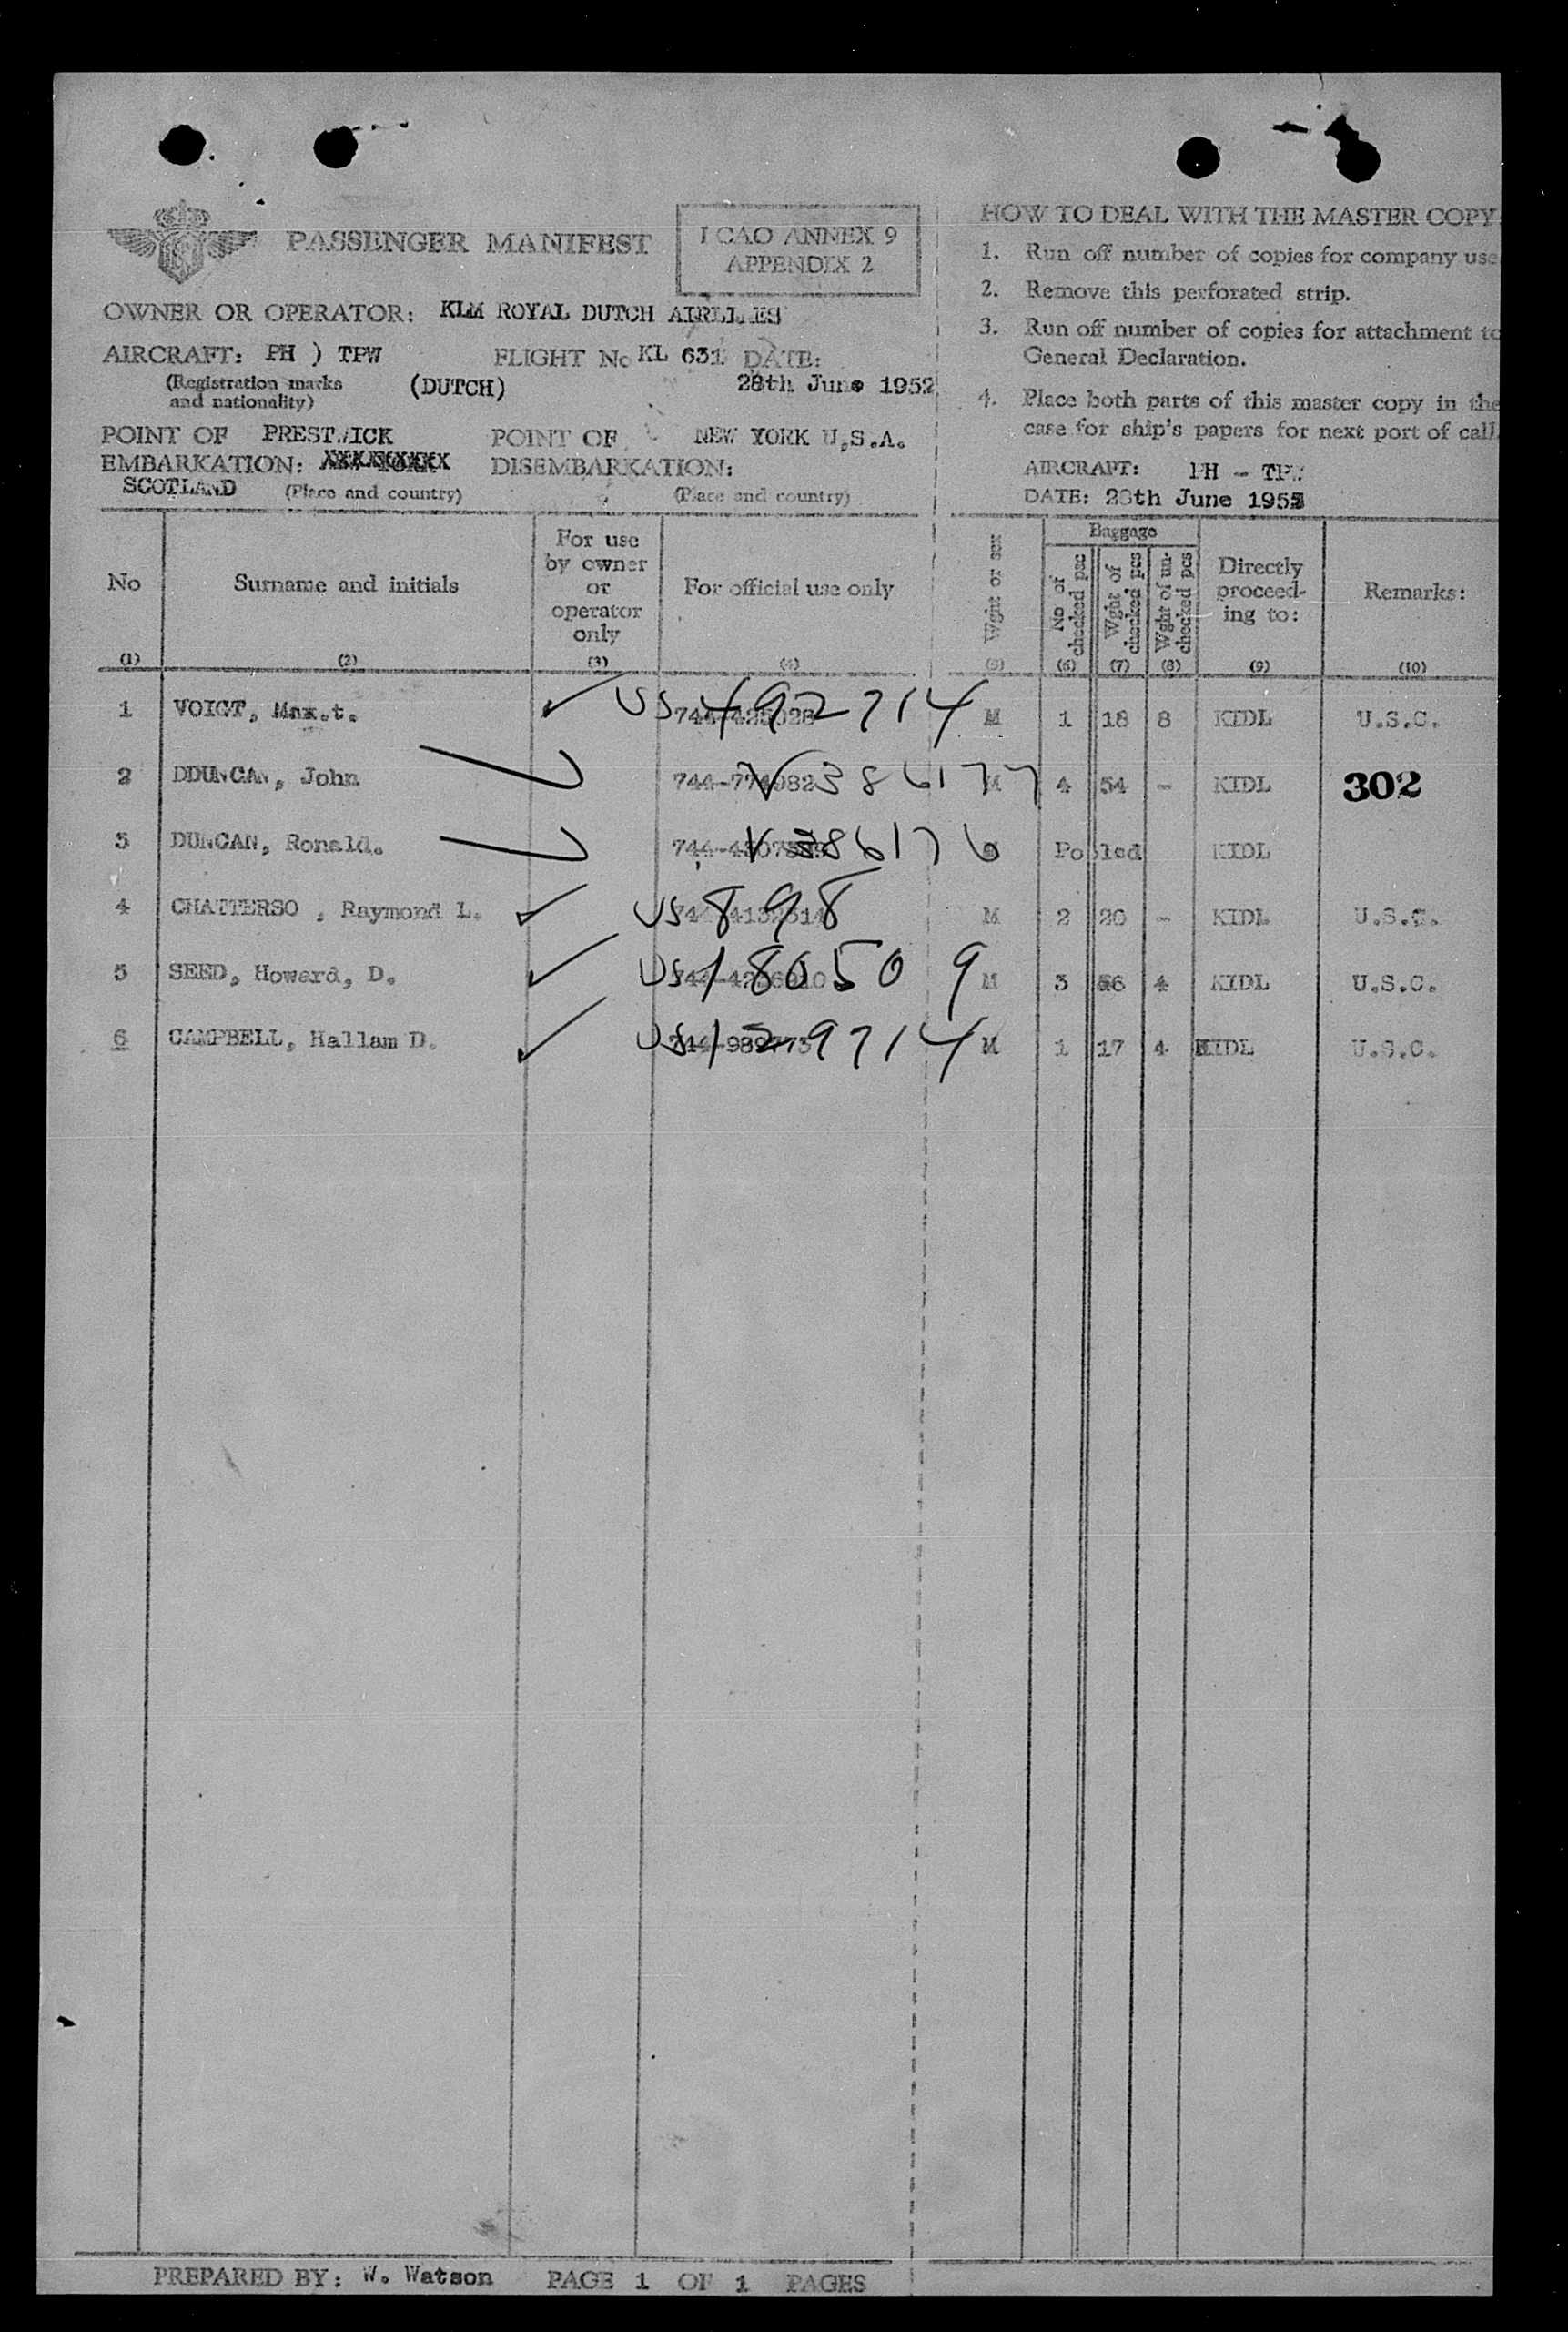 PASSENGER MANIFEST
I CAO ANNEX 9
APPENDIX 2
OWNER OR OPERATOR: KLM ROYAL DUTCH
AIRCRAFT: PH ) TPW FLIGHT No KL 631 DATE:
(Registration marks and nationality) (DUTCH) 28th June 1952
POINT OF EMBARKATION: PREST.ICK
SCOTLAND (Place and country)
POINT OF DISEMBARKATION: NEW YORK U.S.A.
(Place and country)
HOW TO DEAL WITH THE MASTER COPY
1. Run off number of copies for company use
2. Remove this perforated strip.
3. Run off number of copies for attachment to
General Declaration.
4. Place both parts of this master copy in the
case for ship's papers for next port of call.
AIRCRAFT: PH - TPW
DATE: 28th June 1952
No
(1)
Surname and initials
(2)
For use
by owner
or
operator
only
(3)
For official use only
(4)
Wght or sex
(5)
Baggage
No of checked pcs
(6)
Wght of checked pcs
(7)
Wght of un-checked pcs
(8)
Directly
proceed-
ing to:
(9)
Remarks:
(10)
1 VOIGT, Max.t. ✓ US 492714 M 1 18 8 KIDL U.S.C.
2 DDUNCAN, John V386177 M 4 54 - KIDL 302
3 DUNCAN, Ronald. V386176 KIDL
4 CHATTERSO , Raymond L. ✓ US 898 M 2 20 - KIDL U.S.C.
5 SEED, Howard, D. ✓ US 180509 M 3 4 KIDL U.S.C.
6 CAMPBELL, Hallam D. ✓ US 129714 M 1 17 4 KIDL U.S.C.
PREPARED BY: W. Watson PAGE 1 OF 1 PAGES